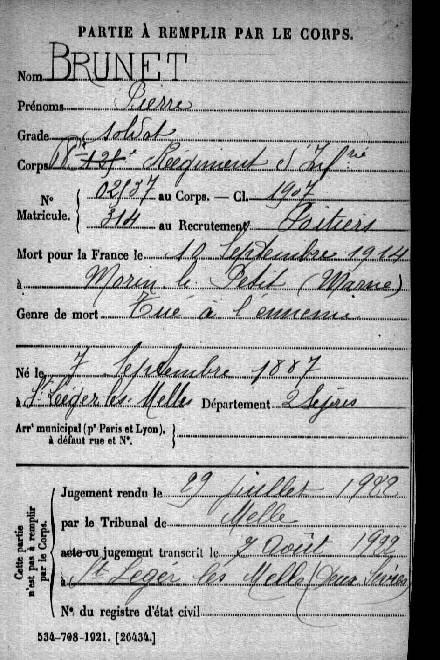 PARTIE À REMPLIR PAR LE CORPS.
Nom BRUNET
Prénoms Pierre
Grade soldat
Corps 68e 125e Régiment d'Infrie
N° Matricule. { 02137 au Corps. — Cl. 1907
314 au Recrutement Poitiers
Mort pour la France le 10 Septembre 1914
à Morin le Petit (Marne)
Genre de mort Tué à l'ennemi
Né le 7 Septembre 1887
à St Léger les Melle Département 2 Sèvres
Arrt municipal (pr Paris et Lyon), à défaut rue et N°. }
Cette partie n'est pas à remplir par le Corps.
Jugement rendu le 29 juillet 1922
par le Tribunal de Melle
acte ou jugement transcrit le 7 août 1922
à St Léger les Melle (Deux Sèvres)
N° du registre d'état civil
534-708-1921. [26434.]